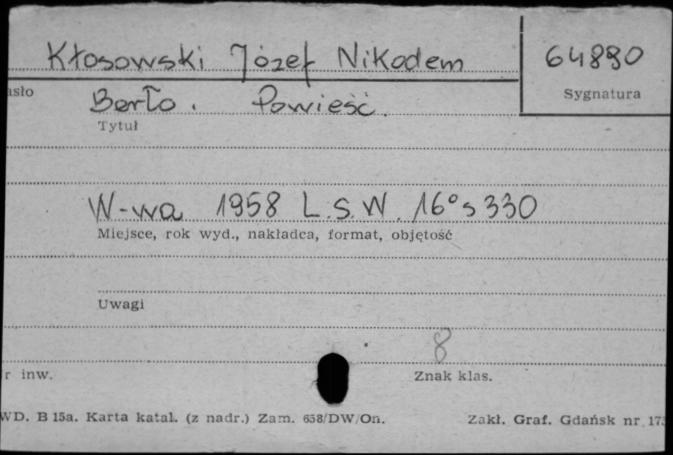 Kłosowski Józef Nikodem 64890
asło Berło. Powieść. Sygnatura
Tytuł
W-wa 1958 L.S.W. 16° s 330
Miejsce, rok wyd., nakładca, format, objętość
Uwagi
8
r inw. Znak klas.
WD. B 15a. Karta katal. (z nadr.) Zam. 658/DW/On. Zakł. Graf. Gdańsk nr 173